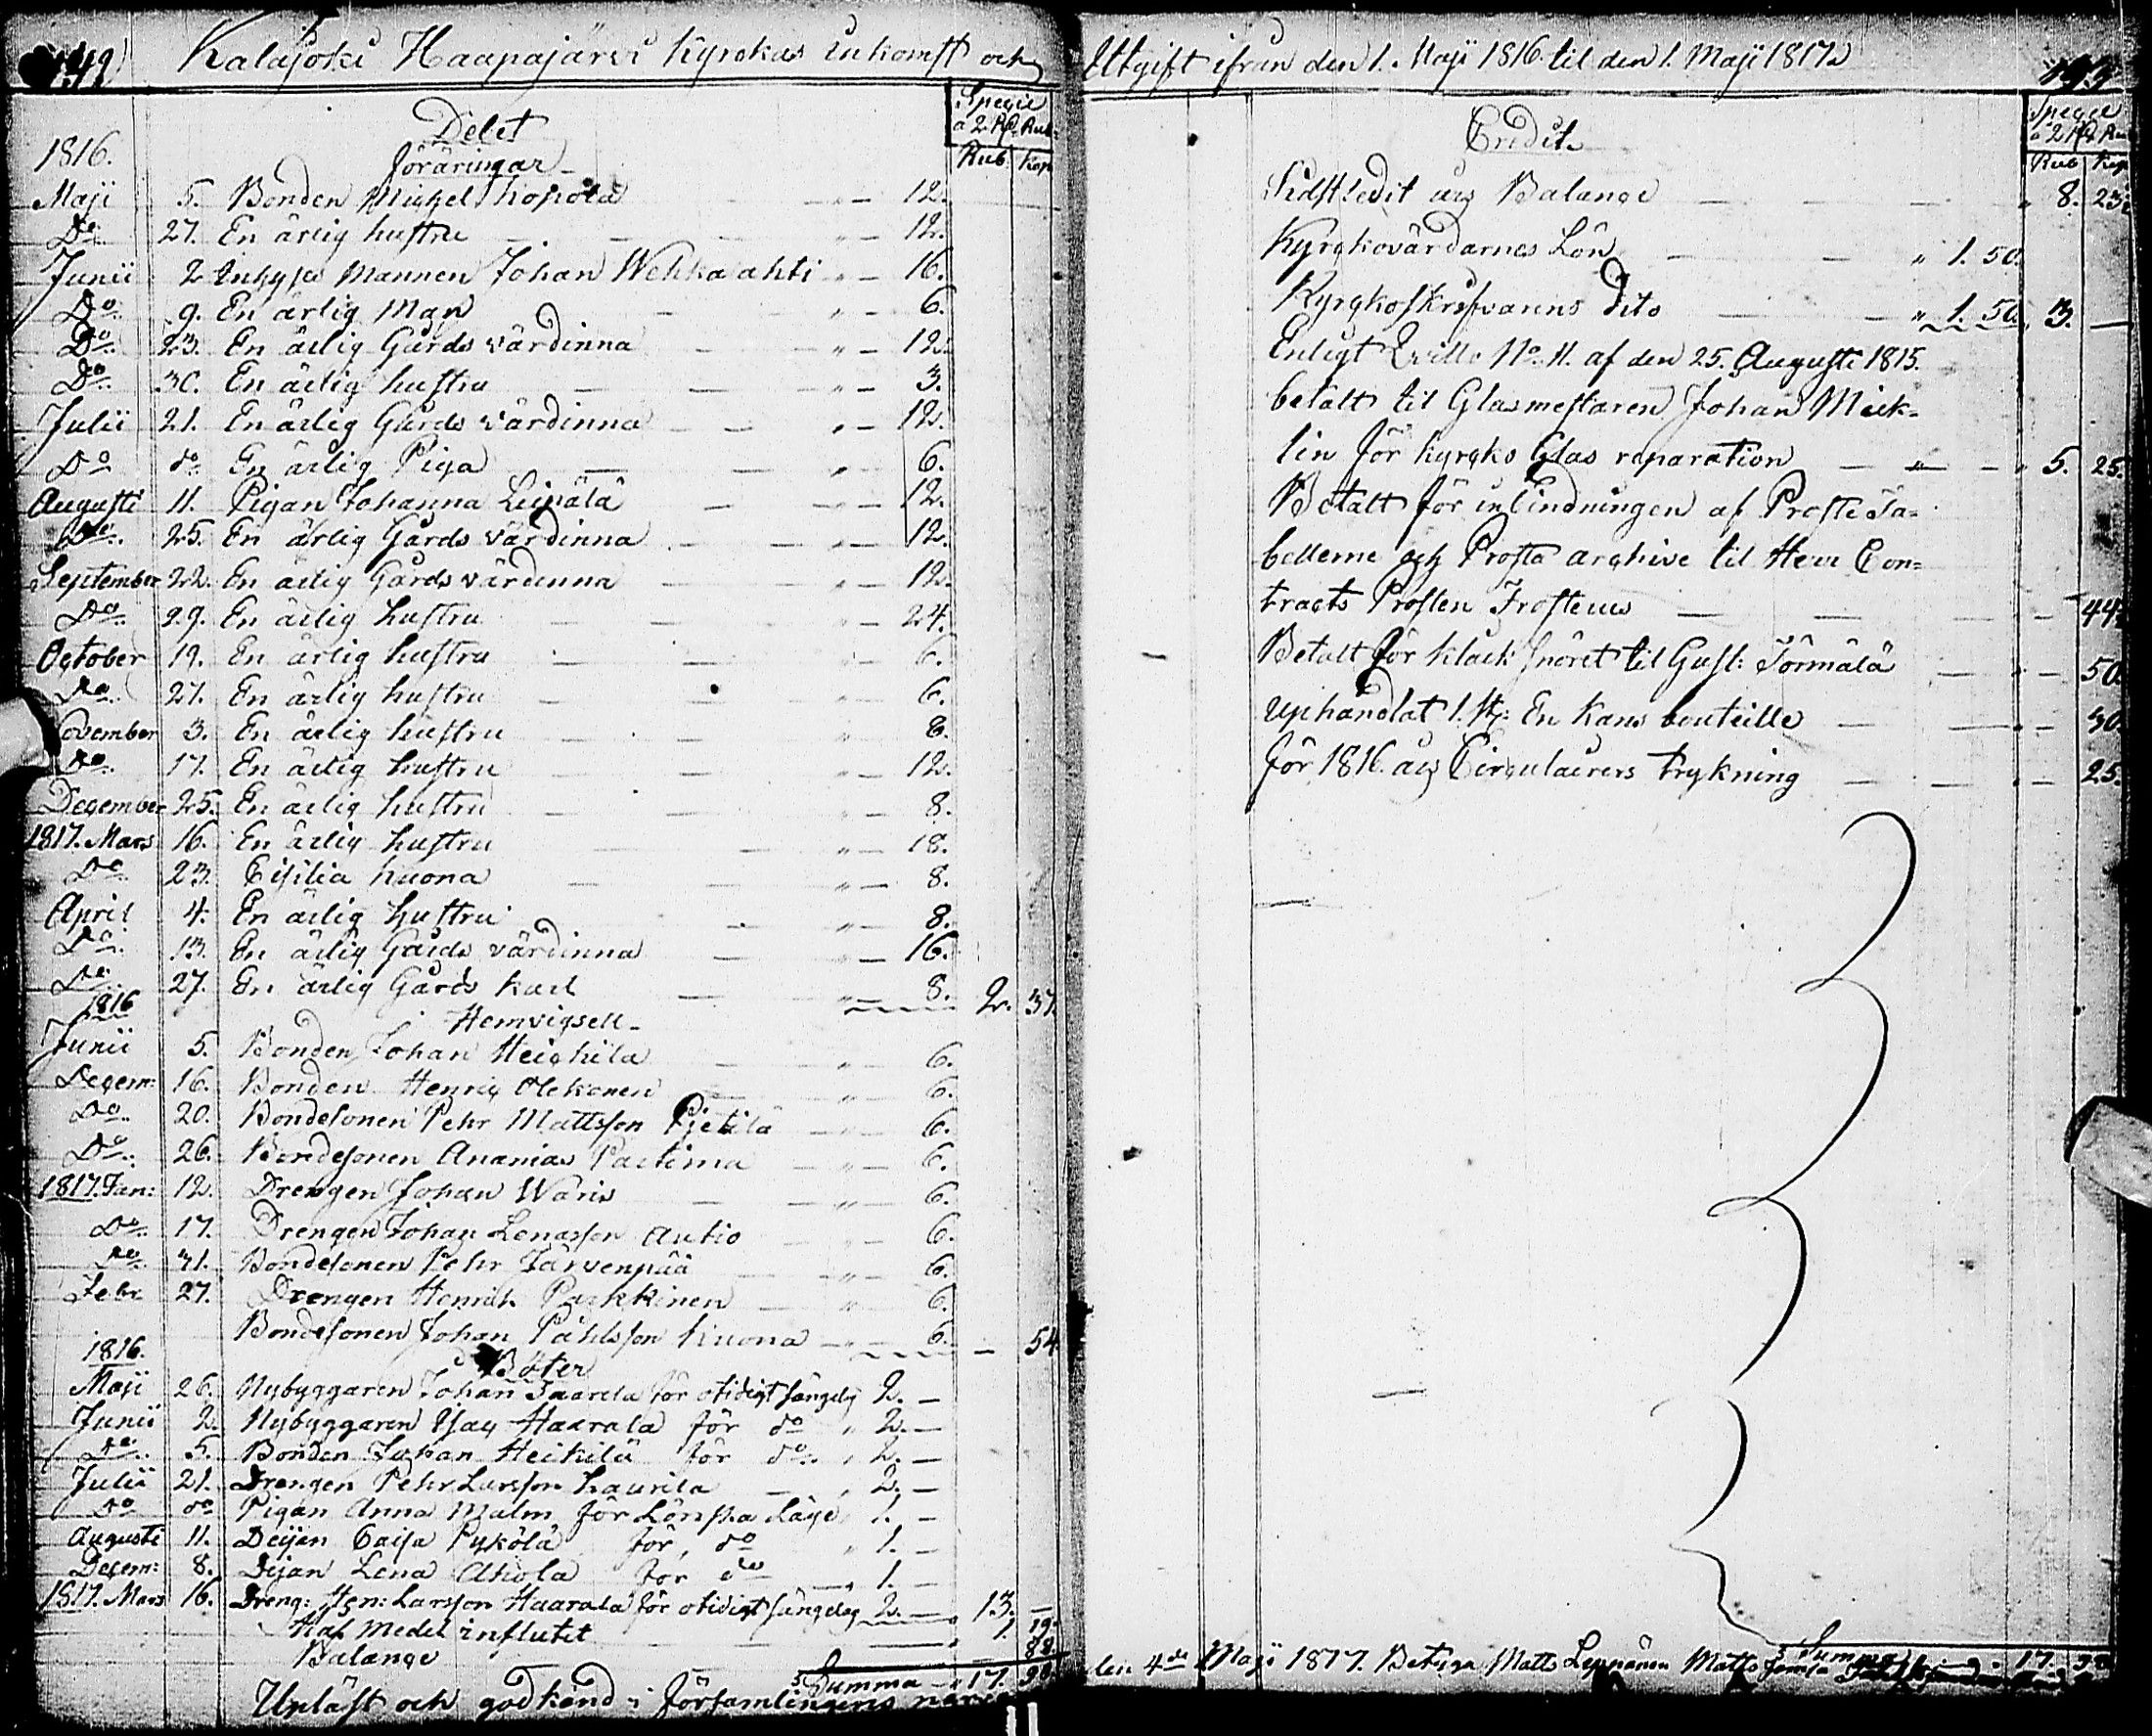 Kalajoki Haapajärvi Kyrckas inkomst och
Debet
Spezie
a 2 Rd. Rub.
Rub. Kop
1816.
föräringar
Maji 5. Bonden Michel Kopola " — 12.
Do. 27. En ärlig hustru " — 12.
Junii 2. Inhyses Mannen Johan Wehkalahti " — 16.
Do. 9. En ärlig Man " — 6.
Do. 23. En ärlig Gårds värdinna " — 12.
Do. 30. En ärlig hustru " — 3.
Julii 21. En ärlig Gårds värdinna " — 12.
Do do. En ärlig Piga " 6.
Augusti 11. Pigan Johanna Leipälä " — 12.
Do. 25. En ärlig Gårds värdinna " — 12.
September 22. En ärlig Gårds värdinna " — 12.
Do. 29. En ärlig hustru " — 24.
October 19. En ärlig hustru " 6.
Do. 27. En ärlig hustru " 6.
November 3. En ärlig hustru " 8.
Do. 17. En ärlig hustru " — 12.
December 25. En ärlig hustru " — 8.
1817. Mars 16. En ärlig hustru " — 18.
Do. 23. Cisilia Kuona " — 8.
April 4. En ärlig hustru " — 8.
Do. 13. En ärlig Gårds värdinna " — 16.
Do. 27. En ärlig Gårds karl " — 8. 2. 37.
1816
Hemvigsell
Junii 5. Bonden Johan Heickilä " 6.
Decem: 16. Bonden Henric Olckonen " 6.
Do. 20. Bondesonen Pehr Mattsson Pietilä " 6.
Do. 26. Bondesonen Ananias Partima " 6.
1817. Jan: 12. Drengen Johan Waris " 6.
Do. 17. Drengen Johan Lenasson Autio " 6.
Do. 31. Bondesonen Pehr Järvenpää " 6.
Febr 27. Drengen Henrik Parkkinen " 6.
Bondesonen Johan Påhlsson Kuona " 6. — 54
1816.
Böter
Maji 26. Nybyggaren Johan Saarela för otidigt sängelag 2. —
Junii 2. Nybyggaren Isac Haarala för do " 2. —
Do. 5. Bonden Johan Heikilä för do. " 2. —
Julii 21. Drengen Pehr Larsson Laurila — " 2. —
Do do Pigan Anna Malm för Lönska Läge 1. —
Augusti 11. Deijan Caisa Pyköla för do " 1. —
Decem: 8. Dejan Lena Ahola för do " 1. —
1817. Mars 16. Dreng: Hen: Larsson Haarala för otidigt sängelag 2. — " 13. —
Håf Medel influtet 1. 19.
Balance 88
Summa " 17. 98.
Upläst och godkänd i församlingens närva
Utgift ifrån den 1. Maji 1816. til den 1. Maji 1817.
Credit
Spezie
a 2 Rd. Rub
Rub Kop
Sidstledit års Balance " 8. 23
Kyrckovärdarnes Lön " 1. 50.
Kyrckoskrifvarens dito " 1. 50. " 3. —
Enligt Qvitto No. 11. af den 25. Augusti 1815.
betalt til Glasmestaren Johan Mick-
lin för kyrcko Glas reparation — " — " 5. 25.
Betalt för inbindningen af Proste Ta-
bellerne och Prosta archive til Herr Con-
tracts Prosten Frosterus — 44
Betalt för klåck snöret til Gust: Törmälä — " — 50.
Uphandlat 1. st: En Kans bouteille — " — 30.
för 1816. års Circulairers trykning — " — 25.
Summa " 17. 98
den 4de Maji 1817. Betyga Matts Leppänen Matts